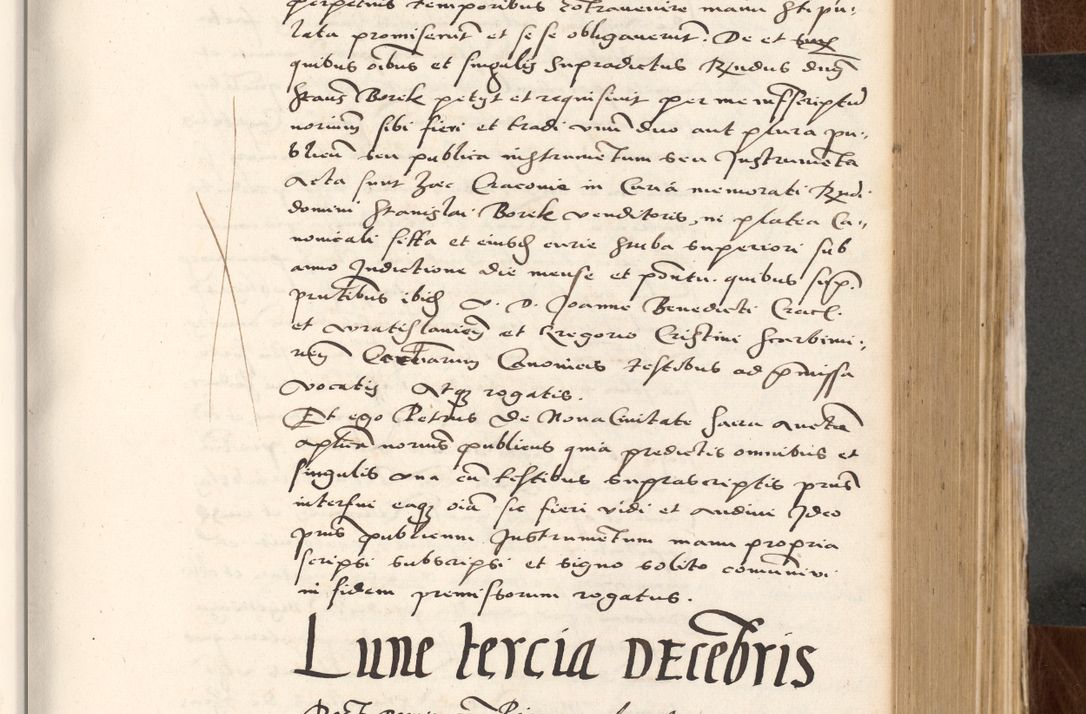 perpetuis temporibus cotravenire manu stipu:
lata promiserut et se se obligaverut. De et
quibus oibus et singulis supradictus Rndus dns
Stans Borek petyt et requisivit per me infscriptu
noriums sibi fieri et tradi unu duo aut plura pu:
blicu seu publica instrumetum seu Instrumeta
Acta sunt hec Cracovie in Curia memorati Rndi
domini Stanislai Borek venditoris, in platea Ca:
nonicali sitta et eiusd curie stuba superiori sub
anno Indictione die mense et pontu. quibus sup.
prntibus ibid v. D. Joanne Benedicti Cracl.
et Vratislavien et Gregorio Cristini Scarbimi:
rien Ecclarum Canonicis testibus ad pmissa
vocatis Atq rogatis.
Et ego Petrus de Nova Civitate sacra aucte
aplica norius publicus quia predictis omnibus et
singulis una cu testibus suprascriptis prns
interfui eaq oia sic fieri vidi et audivi Ideo
prns publicum Instrumetum manu propria
scripsi subscripsi et signo solito comunivi
in fidem premissorum rogatus.
Lune tercia DEcebris